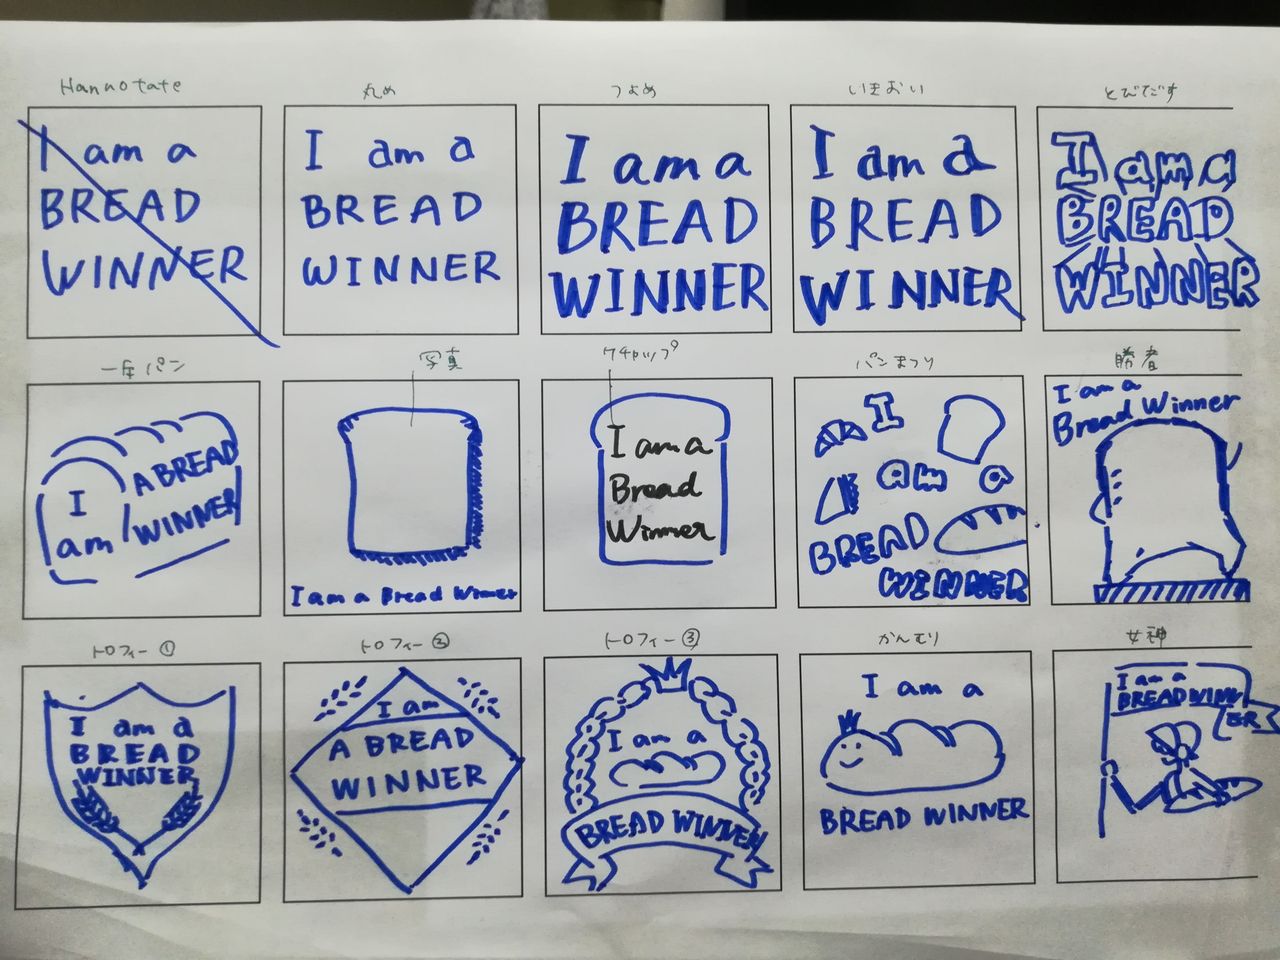 Hannotate
I am a
BREAD
WINNER
丸め
I am a
BREAD
WINNER
つよめ
I am a
BREAD
WINNER
いきおい
I am a
BREAD
WINNER
とびだす
I am a
BREAD
WINNER
一斤パン
I
am
A BREAD
WINNER
写真
I am a Bread Winner
ケチャップ
I am a
Bread
Winner
パンまつり
I
am a
BREAD
WINNER
勝者
I am a
Bread Winner
トロフィー①
I am a
BREAD
WINNER
トロフィー②
I am
A BREAD
WINNER
トロフィー③
I am a
BREAD WINNER
かんむり
I am a
BREAD WINNER
女神
I am a
BREAD WINN
ER